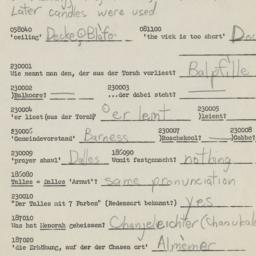 Later candles were used
058040 081100
'ceiling' 'the wick is too short'
230001
Wie nennt man den, der aus der Torah vorliest? Balpfille
230002 230003
)Balkoore? ...der dabei steht?
230004 230005
'er liest(aus der Torah)' er leint )leient?
230006 230007 230008
'Gemeindevorstand' Barness )Roschekool? )Gabbe?
230009 186090
'prayer shawl' Dalles Womit festgemacht? nothing
186080
Talles = Dalles 'Armut'? same pronunciation
230010
"Der Talles mit 7 Farben" (Redensart bekannt?) yes
187010
Was hat Menorah geheissen?
187020
'die Erhöhung, auf der der Chasen ort' Almemer